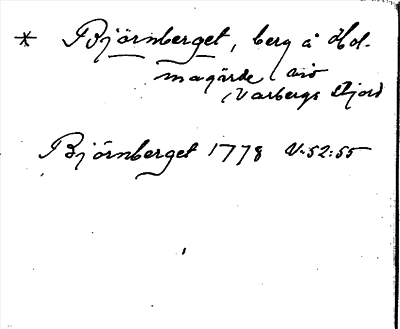 * Björnberget, berg å Hol-
magärde vid
Varbergs Fjord
Björnberget 1778 V:52:55